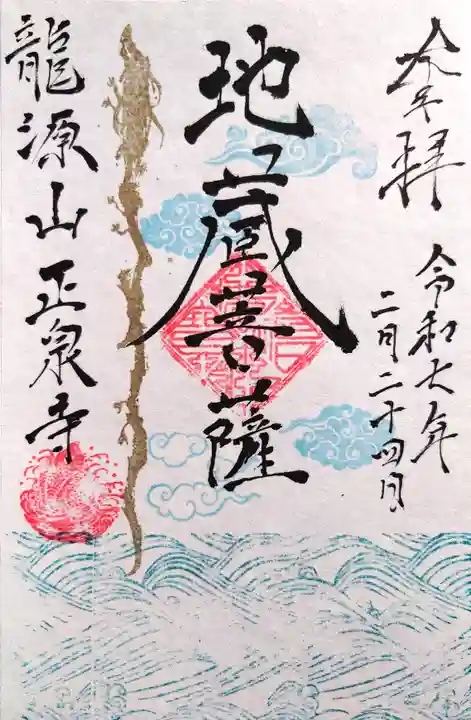 奉拝
令和六年
二月二十四日
地蔵菩薩
龍源山正泉寺